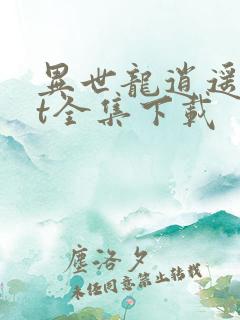 異世龍逍遥
t全集下載
塵洛夕
未经同意禁止转载